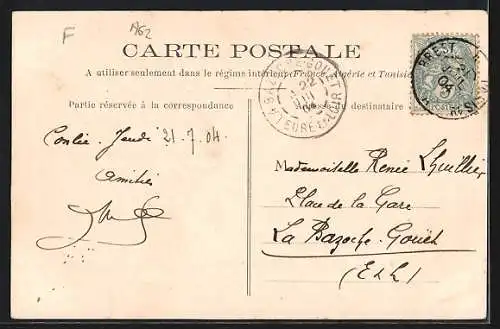 F
1962
CARTE POSTALE
A utiliser seulement dans le régime intérieur, France, Algérie et Tunisie
Partie réservée à la correspondance
Adresse du destinataire
LA BAZOCHE-GOUET
22
EURE-ET-LOIR
BREST
04
Conlie, Jeudi 21.7.04.
Amitiés
Mademoiselle Renée Lhuillier
Place de la Gare
La Bazoche-Gouët
(E & L)